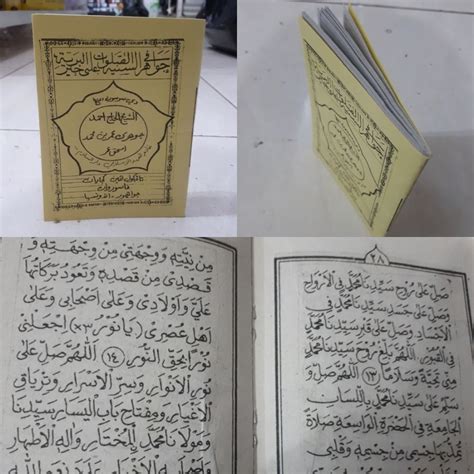 جواهر السنية في الصلوات على خير البرية
الشيخ الحاج احمد
جوهري عمر بن محمد
اسحق
مِنْ نِيَّتِهِ وَوِجْهَتِيْ مِنْ وِجْهَتِهِ وَ
قَصْدِيْ مِنْ قَصْدِهِ وَتَعُوْدُ بَرَكَاتُهَا
عَلَيَّ وَأَوْلَادِيْ وَعَلَى أَصْحَابِيْ وَعَلَى
أَهْلِ عَصْرِيْ (يَانُوْرُ ٣٣×) اِجْعَلْنِيْ
نُوْرًا بِحَقِّ النُّوْرِ (١٤) اَللّٰهُمَّ صَلِّ عَلَى
نُوْرِ الْأَنْوَارِ وَسِرِّ الْأَسْرَارِ وَتِرْيَاقِ
الْأَغْيَارِ وَمِفْتَاحِ بَابِ الْيَسَارِ سَيِّدِنَا
وَمَوْلَانَا مُحَمَّدٍ الْمُخْتَارِ وَآلِهِ الْأَطْهَارِ
٢٨
صَلِّ عَلَى رُوْحِ سَيِّدِنَا مُحَمَّدٍ فِي الْأَرْوَاحِ
وَصَلِّ عَلَى جَسَدِ سَيِّدِنَا مُحَمَّدٍ فِي
الْأَجْسَادِ وَصَلِّ عَلَى قَبْرِ سَيِّدِنَا مُحَمَّدٍ
فِي الْقُبُوْرِ اَللّٰهُمَّ بَلِّغْ رُوْحَ سَيِّدِنَا مُحَمَّدٍ
مِنِّيْ تَحِيَّةً وَسَلَامًا (١٣) اَللّٰهُمَّ صَلِّ وَ
سَلِّمْ عَلَى سَيِّدِنَا مُحَمَّدٍ بِاللِّسَانِ
الْجَامِعَةِ فِي الْحَضْرَةِ الْوَاسِعَةِ صَلَاةً
تُمِدُّ بِهَا جِسْمِيْ مِنْ جِسْمِهِ وَقَلْبِيْ